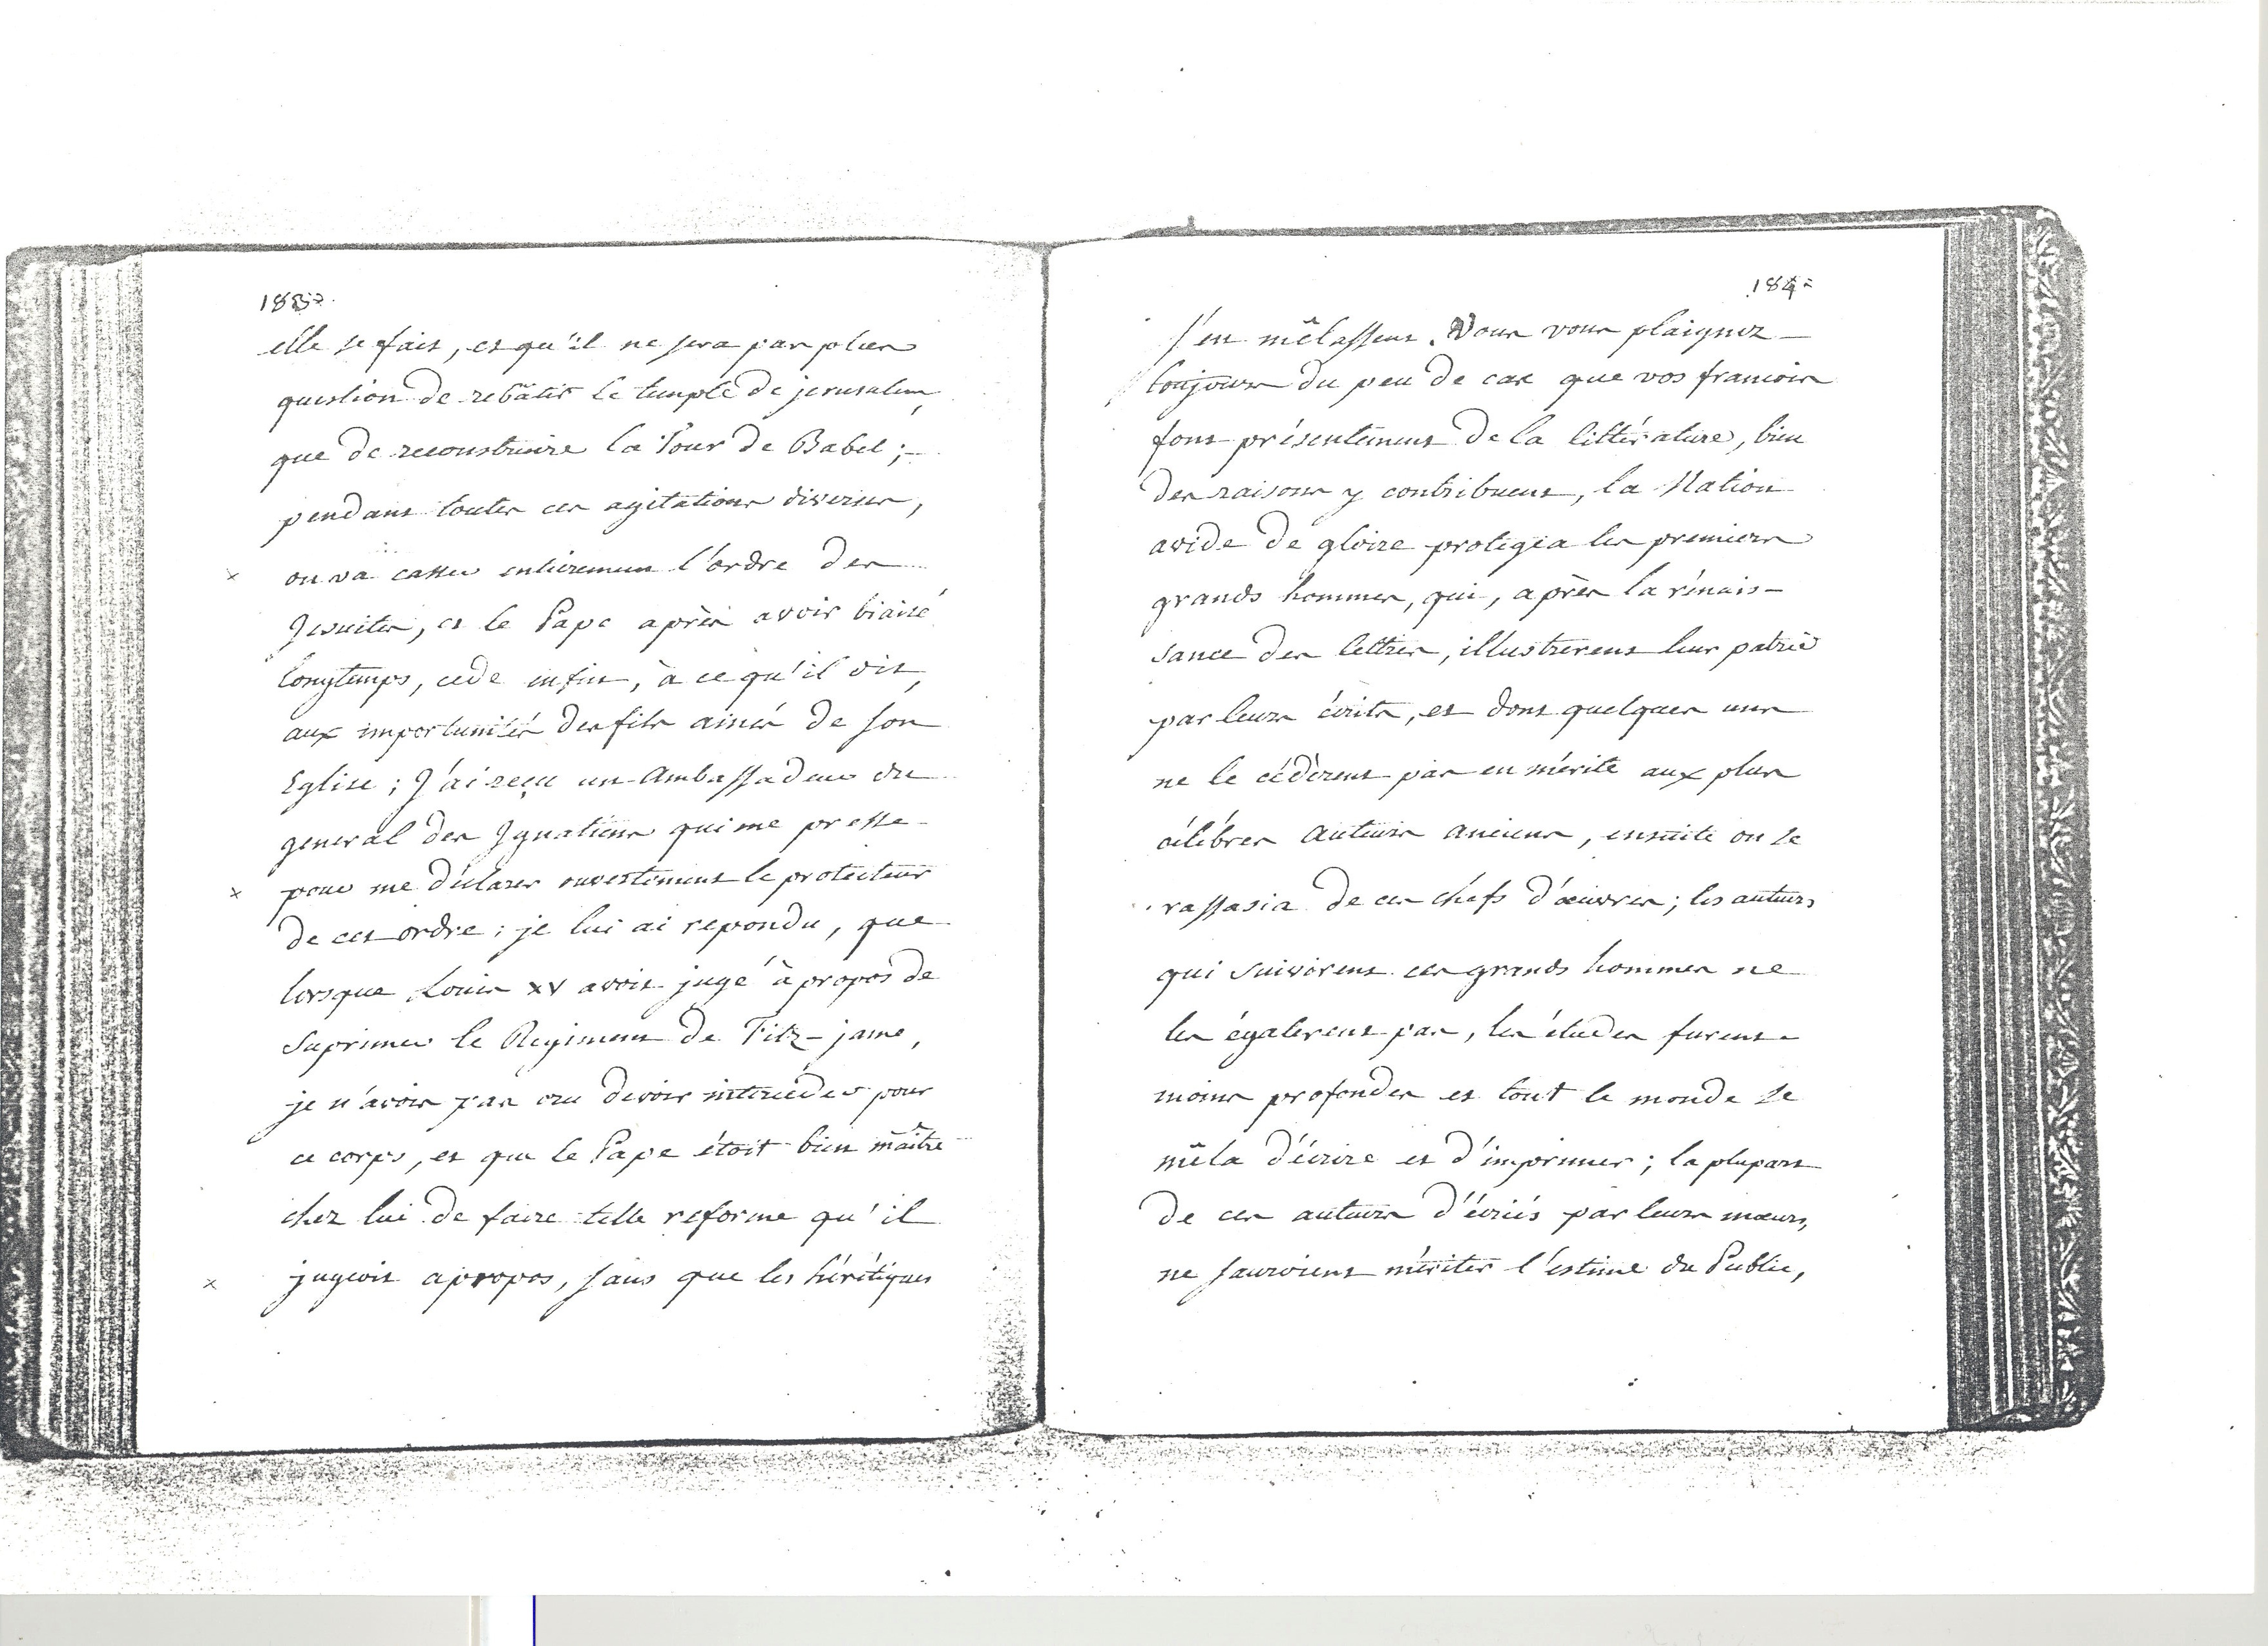 183
elle se fait, et qu'il ne sera pas plus
question de rebâtir le temple de jerusalem,
que de reconstruire la Tour de Babel ;
pendant toutes ces agitations diverses,
on va casser entierement l'ordre des
Jesuites, et le Pape après avoir biaisé
longtemps, cede enfin, à ce qu'il dit,
aux importunités des fils ainés de son
Eglise ; J'ai reçu un Ambassadeur du
general des Ignatiens qui me presse
pour me déclarer ouvertement le protecteur
de cet ordre : je lui ai repondu, que
lorsque Louis XV avoit jugé à propos de
suprimer le Regiment de Fitz-jame,
je n'avois pas cru devoir intercéder pour
ce corps, et que le Pape étoit bien maître
chez lui de faire telle reforme qu'il
jugeoit apropos, sans que les hérétiques
184
s'en mêlassent. Vous vous plaignez
toujours du peu de cas que vos francois
font présentement de la littérature, bien
des raisons y contribuent, la Nation
avide de gloire protegea les premiers
grands hommes, qui, après la rénais-
sance des lettres, illustrerent leur patrie
par leurs écrits, et dont quelques uns
ne le cédèrent pas en mérite aux plus
célébres Auteurs Anciens, ensuite on se
rassasia de ces chefs d'œuvres ; les auteurs
qui suivirent ces grands hommes ne
les égalerent pas, les études furent
moins profondes et tout le monde se
mêla d'écrire et d'imprimer ; la plupart
de ces auteurs d'écriés par leurs mœurs,
ne sauroient mériter l'estime du Public,